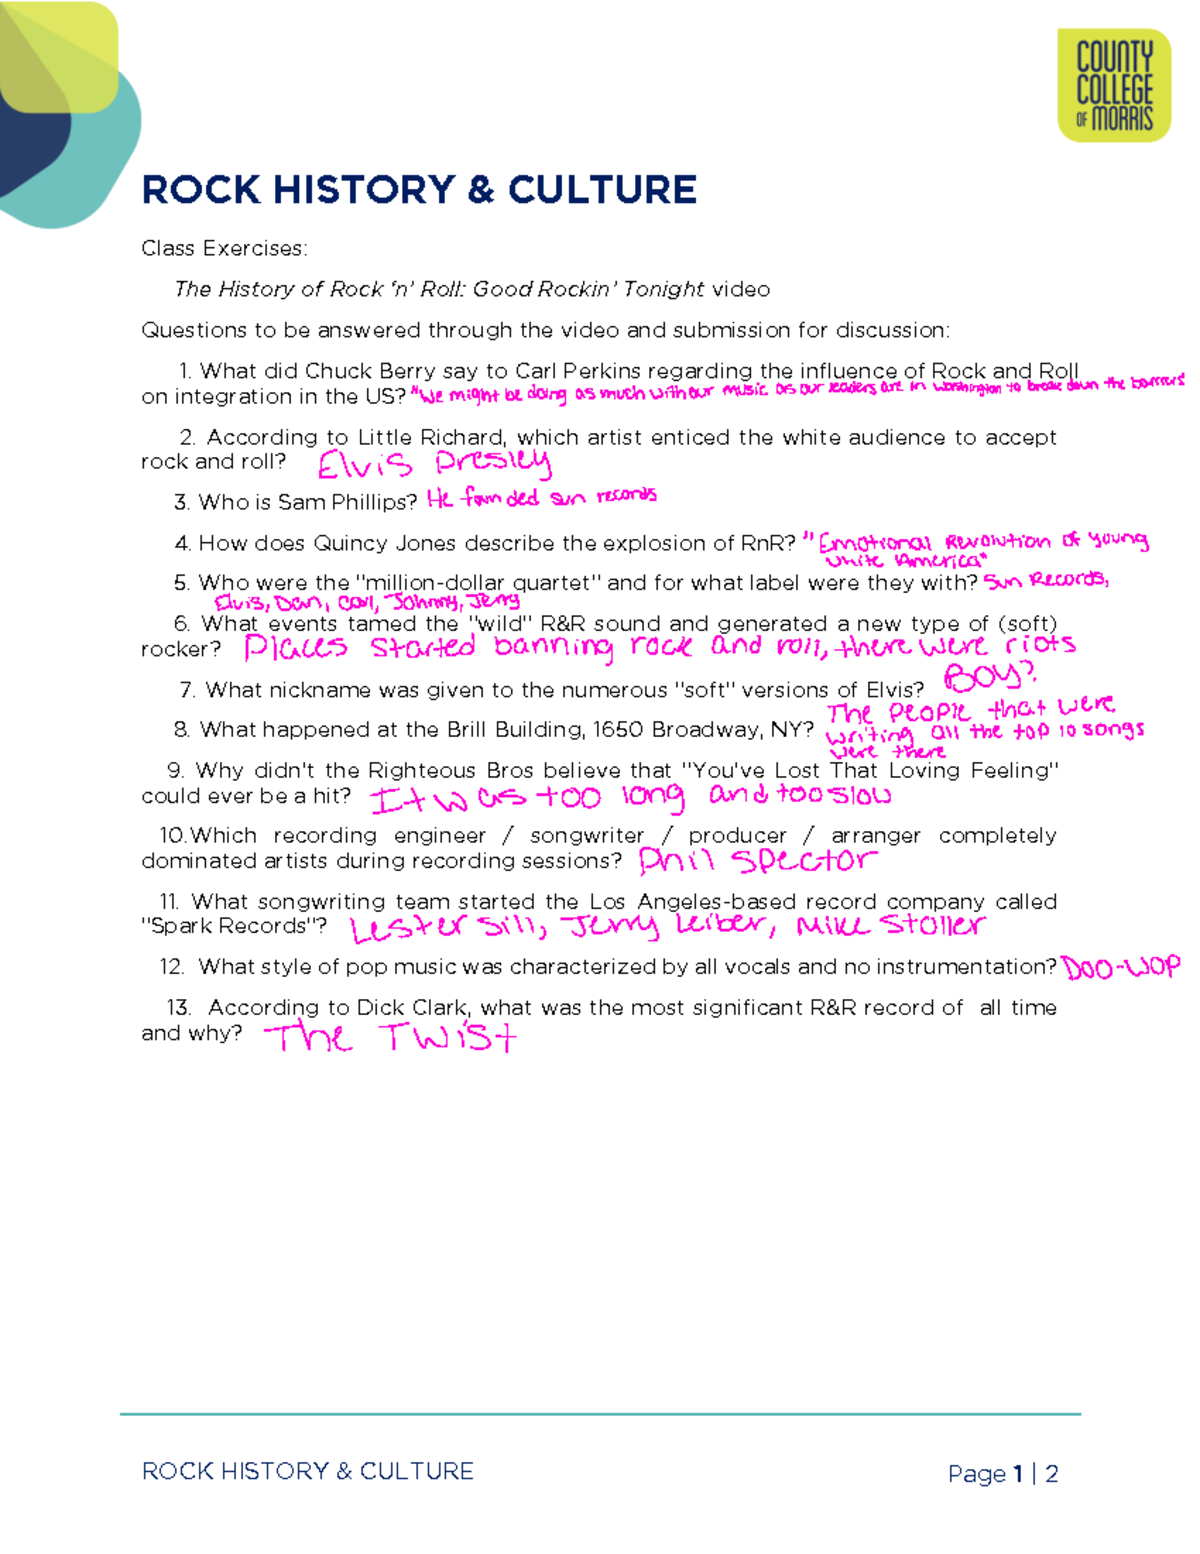 COUNTY
COLLEGE
OF MORRIS
ROCK HISTORY & CULTURE
Class Exercises:
The History of Rock 'n' Roll: Good Rockin' Tonight video
Questions to be answered through the video and submission for discussion:
1. What did Chuck Berry say to Carl Perkins regarding the influence of Rock and Roll
on integration in the US? "We might be doing as much with our music as our leaders are in Washington to break down the barriers
2. According to Little Richard, which artist enticed the white audience to accept
rock and roll? Elvis Presley
3. Who is Sam Phillips? He founded sun records
4. How does Quincy Jones describe the explosion of RnR? "Emotional Revolution of young
white America"
5. Who were the "million-dollar quartet" and for what label were they with? Sun Records,
Elvis, Dan, Carl, Johnny, Jerry
6. What events tamed the "wild" R&R sound and generated a new type of (soft)
rocker? Places started banning rock and roll, there were riots
7. What nickname was given to the numerous "soft" versions of Elvis? Boy?
8. What happened at the Brill Building, 1650 Broadway, NY? The people that were
writing all the top 10 songs
were there
9. Why didn't the Righteous Bros believe that "You've Lost That Loving Feeling"
could ever be a hit? It was too long and too slow
10.Which recording engineer / songwriter / producer / arranger completely
dominated artists during recording sessions? Phil Spector
11. What songwriting team started the Los Angeles-based record company called
"Spark Records"? Lester Sill, Jerry Leiber, Mike Stoller
12. What style of pop music was characterized by all vocals and no instrumentation? Doo-Wop
13. According to Dick Clark, what was the most significant R&R record of all time
and why? The Twist
ROCK HISTORY & CULTURE
Page 1 | 2